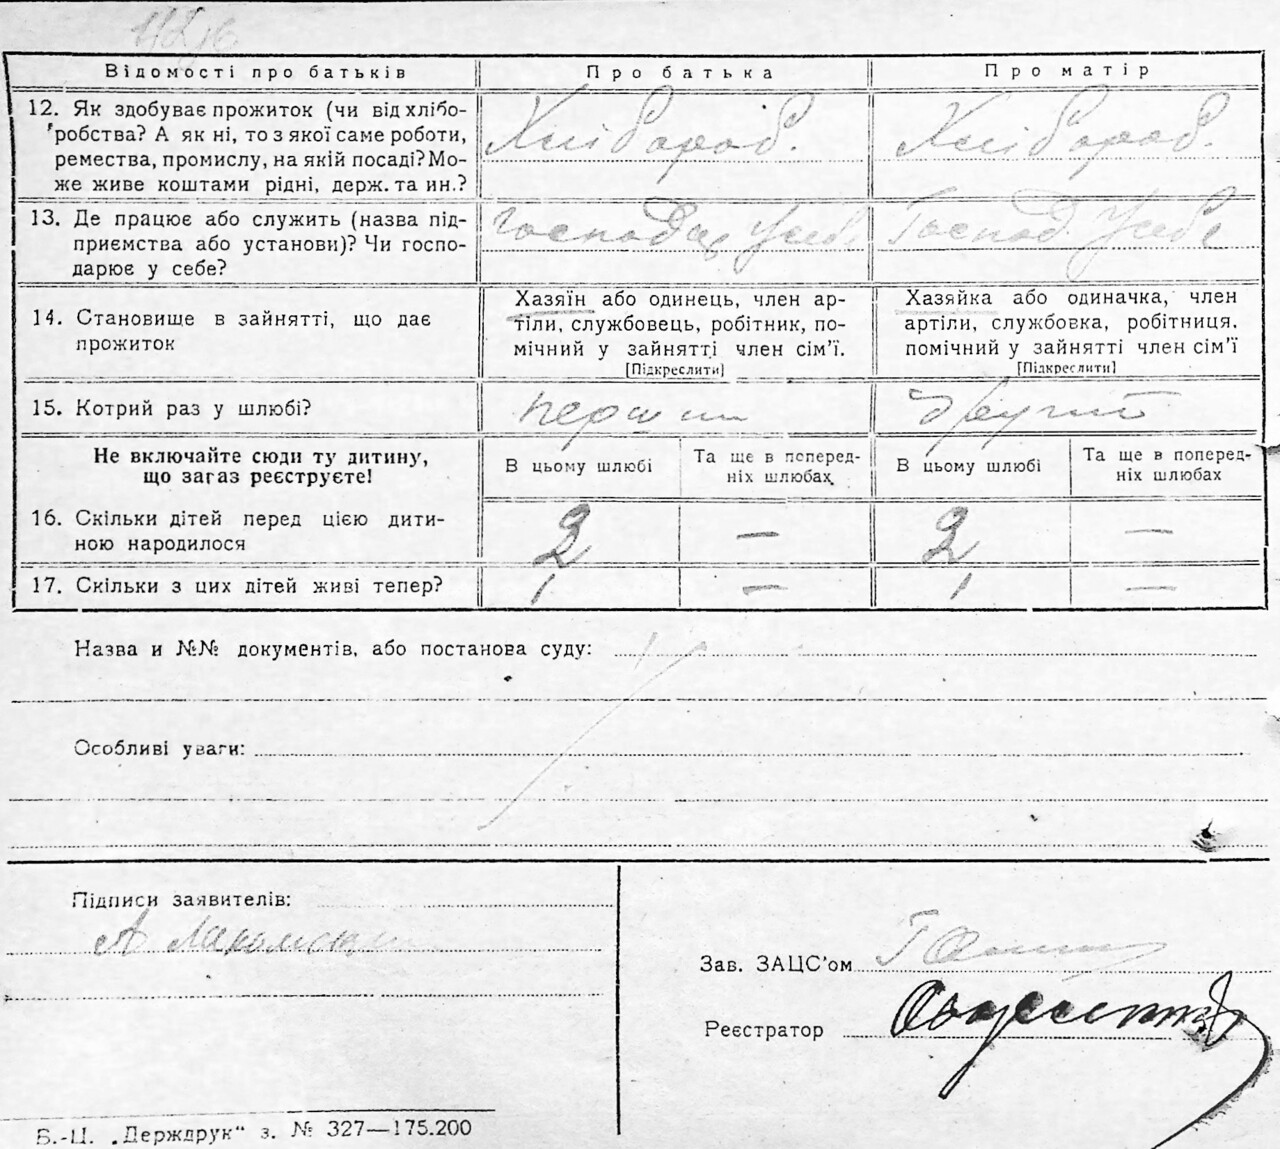 Відомості про батьків
Про батька
Про матір
12. Як здобуває прожиток (чи від хлібо-
робства? А як ні, то з якої саме роботи,
ремества, промислу, на якій посаді? Мо-
же живе коштами рідні, держ. та ин.?
Хлібороб.
Хлібороб.
13. Де працює або служить (назва під-
приємства або установи)? Чи госпо-
дарює у себе?
у себе
Господ. у себе
14. Становище в зайнятті, що дає
прожиток
Хазяїн або одинець, член ар-
тіли, службовець, робітник, по-
мічний у зайнятті член сім'ї.
[Підкреслити]
Хазяйка або одиначка, член
артіли, службовка, робітниця.
помічний у зайнятті член сім'ї
[Підкреслити]
15. Котрий раз у шлюбі?
другий
Не включайте сюди ту дитину,
що загаз реєструєте!
В цьому шлюбі
Та ще в поперед-
ніх шлюбах
В цьому шлюбі
Та ще в поперед-
ніх шлюбах
16. Скільки дітей перед цією дити-
ною народилося
2
—
2
—
17. Скільки з цих дітей живі тепер?
1
—
1
—
Назва и №№ документів, або постанова суду:
Особливі уваги:
Підписи заявителів:
А
Зав. ЗАЦС'ом
Реєстратор
Б.-Ц. „Держдрук" з. № 327—175.200